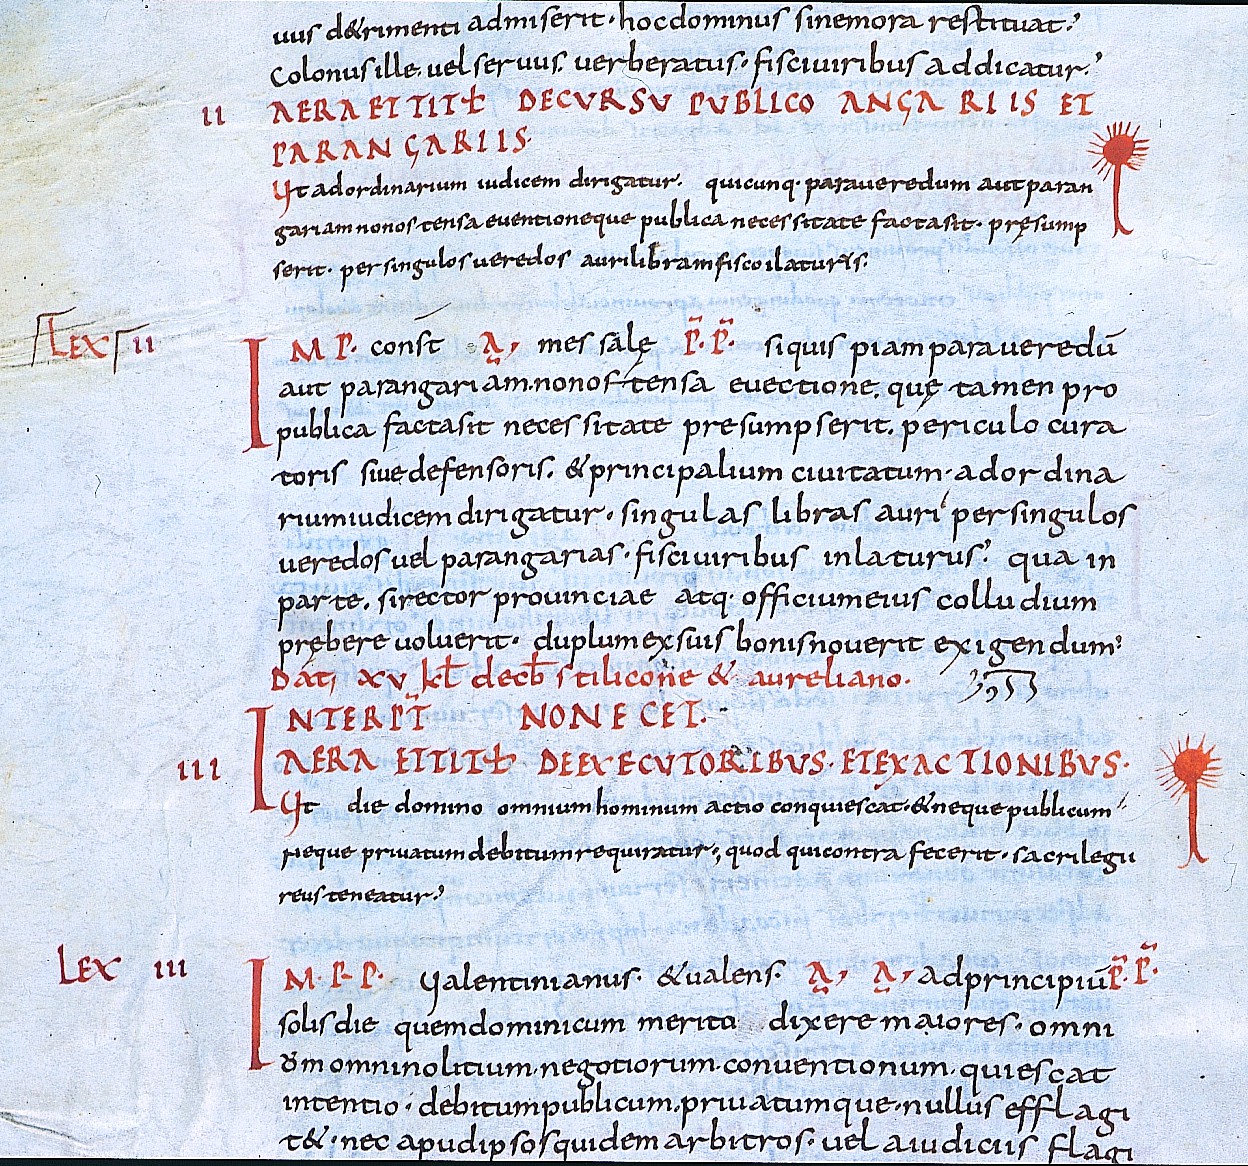 uus detrimenti admiserit · hoc dominus sine mora restituat.
Colonus ille. vel servus. verberatus · fisci viribus addicatur.
II AERA ET TITL DE CURSU PUBLICO ANGARIIS ET
PARANGARIIS.
Ut ad ordinarium iudicem dirigatur. quicunq· paraveredum aut paran
gariam non ostensa evectioneque publica necessitate facta sit · presump
serit · per singulos veredos auri libram fisco ilaturis.
LEX II IMP. const A, messalę P.P. si quis piam paraveredū
aut parangariam. non ostensa evectione. quę tamen pro
publica facta sit necessitate presumpserit. periculo cura
toris sive defensoris. & principalium civitatum · ad ordina
rium iudicem dirigatur · singulas libras auri per singulos
veredos vel parangarias · fisci viribus inlaturus. qua in
parte. si rector provinciae atq· officium eius colludium
prębere voluerit · duplum ex suis bonis noverit exigendum.
Dat, XV kl decb stilicone & aureliano.
INTERPT NON ECET.
III AERA ET TITL DE EXECUTORIBUS · ET EXACTIONIBUS.
Ut die domino omnium hominum actio conquiescat · & neque publicum
neque privatum debitum requiratur; quod qui contra fecerit · sacrilegii
reus teneatur.
LEX III IM·P·P· Valentinianus · & valens. A, A, ad principiū P.P.
solis die quem dominicum merito dixere maiores · omni
um omnino litium. negotiorum. conventionum. quiescat
intentio · debitum publicum. privatumque · nullus efflagi
t& · nec apud ipsos quidem arbitros · vel a iudiciis flagi